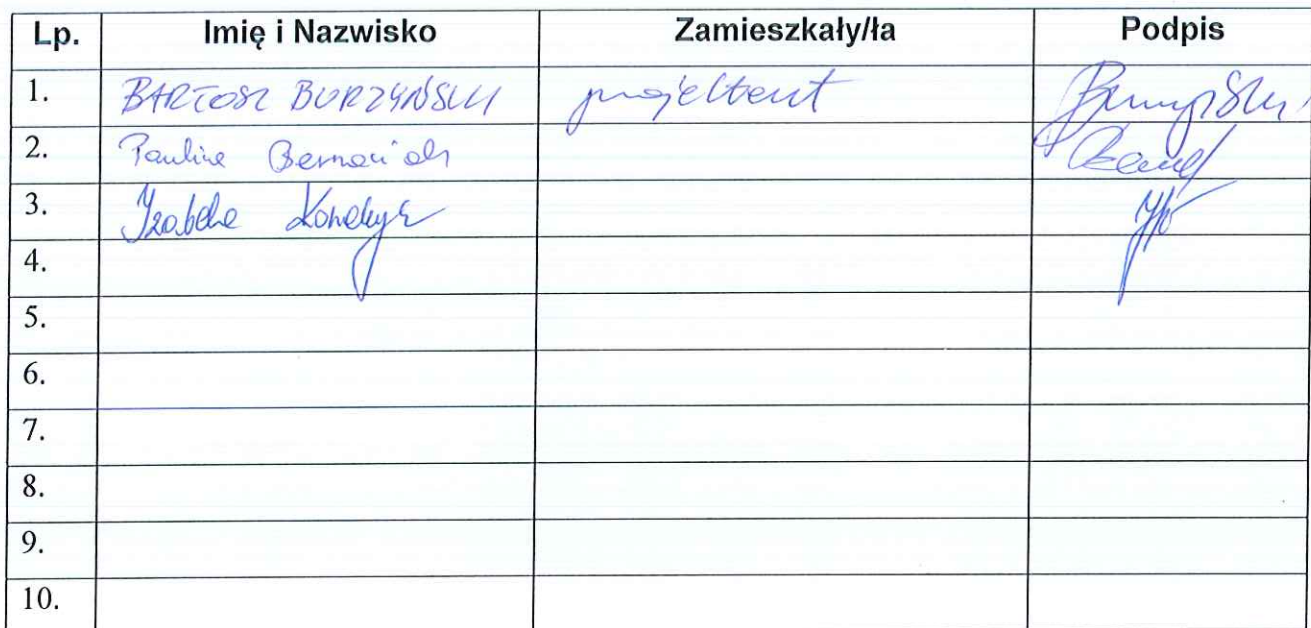 Lp. Imię i Nazwisko Zamieszkały/ła Podpis
1. BARTOSZ BURZYŃSKI projektant
2. Paulina Bernaciak
3. Izabela
4.
5.
6.
7.
8.
9.
10.